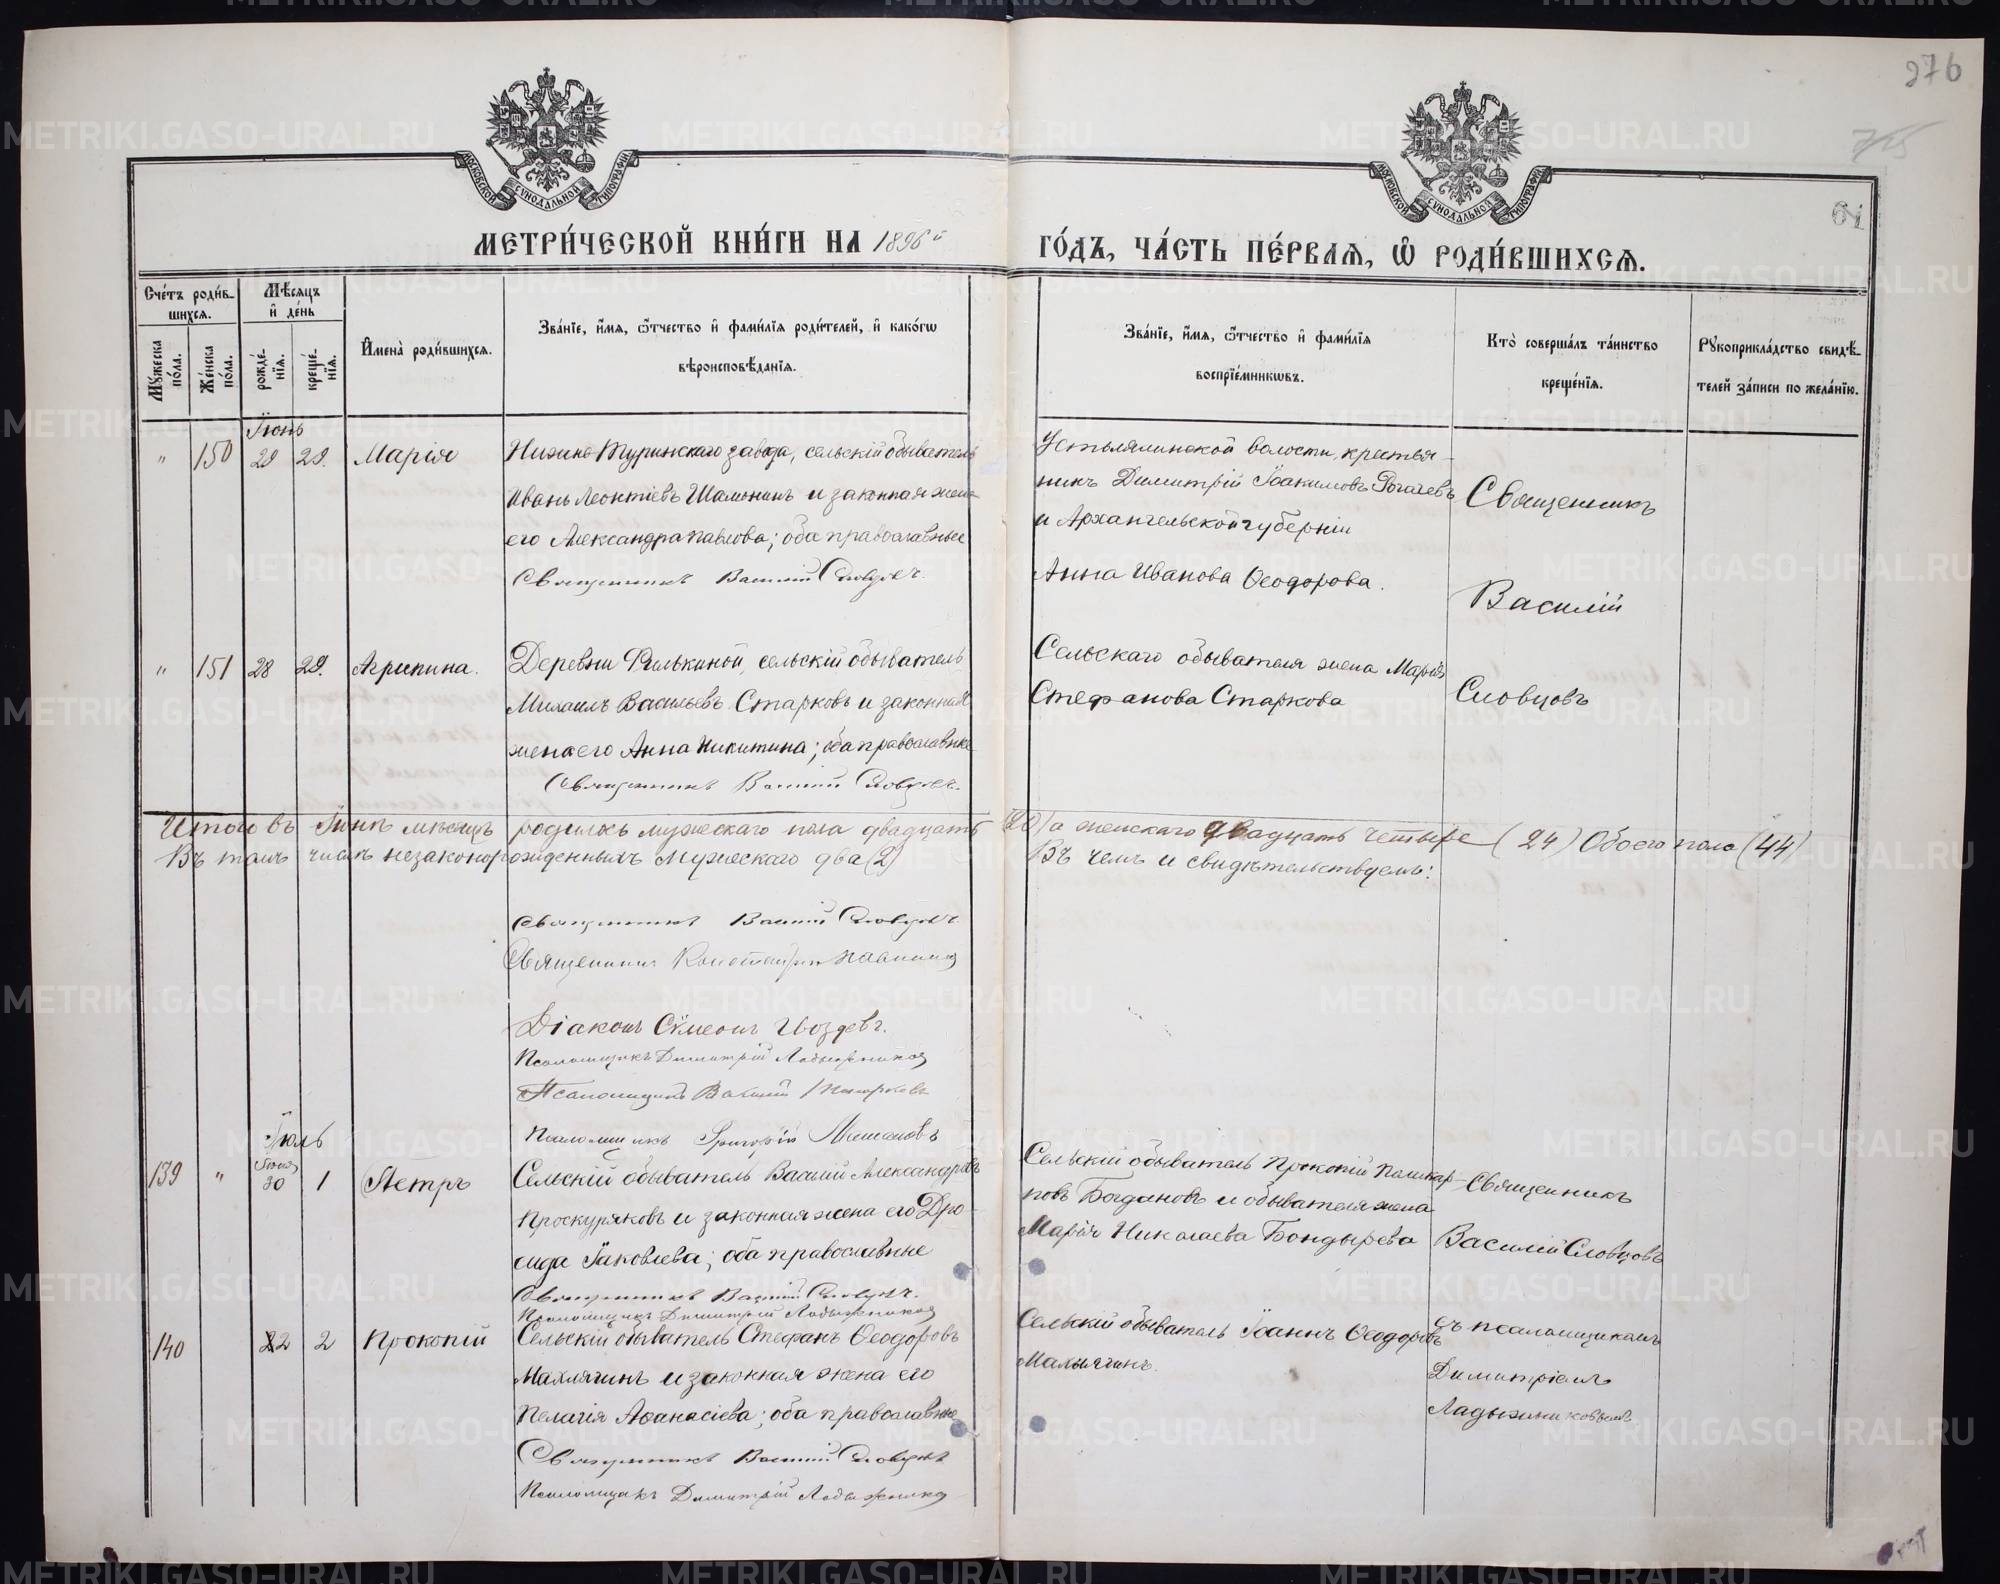 276
61
МОСКОВСКОЙ СѴНОДАЛЬНОЙ ТИПОГРАФІИ
МОСКОВСКОЙ СѴНОДАЛЬНОЙ ТИПОГРАФІИ
МЕТРИ́ЧЕСКОЙ КНИ́ГИ НА 1896й ГО́ДЪ, ЧА́СТЬ ПЕ́РВАѦ, Ѿ РОДИ́ВШИХСѦ.
Сче́тъ роди́в-
шихсѧ.
Мꙋжеска по́ла.
Же́нска по́ла.
Мѣ́сѧцъ и҆ де́нь
рожде́-
нїѧ.
креще́-
нїѧ.
И҆мена̀ роди́вшихсѧ.
Зва́нїе, и҆́мѧ, ѻ҆́тчество и҆ фами́лїѧ роди́телей, и҆ како́гѡ
вѣроисповѣ́данїѧ.
Зва́нїе, и҆́мѧ, ѻ҆́тчество и҆ фами́лїѧ
воспрїе́мникѡвъ.
Кто̀ соверша́лъ та́инство
креще́нїѧ.
Рꙋкоприкла́дство свидѣ́-
телей за́писи по жела́нїю.
Іюнь
" 150 29 29. Марія
Нижне-Туринскаго завода, сельскій обыватель
Иванъ Леонтіевъ Шамонинъ и законная жена
его Александра Павлова; оба православные
Священникъ Василій Словцовъ.
Устьлялинской волости, крестья-
нинъ Димитрій Іоакимовъ Рогачевъ
и Архангельской губерніи
Анна Иванова Ѳеодорова.
Священникъ
Василій
Словцовъ
" 151 28 29. Агрипина.
Деревни Филькиной, сельскій обыватель
Михаилъ Васильевъ Старковъ и законная
жена его Анна Никитина; оба православные
Священникъ Василій Словцовъ.
Сельскаго обывателя жена Марія
Стефанова Старкова
Итого въ Іюнѣ мѣсяцѣ родилось мужескаго пола двадцать (20) а женскаго двадцать четыре (24) Обоего пола (44)
Въ томъ числѣ незаконорожденныхъ мужескаго два (2) Въ чемъ и свидѣтельствуемъ:
Священникъ Василій Словцовъ
Священникъ
Діаконъ Сѵмеонъ Гвоздевъ.
Псаломщикъ Димитрій Ладыжниковъ
Псаломщикъ Василій
Псаломщикъ Григорій
Іюль
139 " Іюня 30 1 Петръ
Сельскій обыватель Василій Александровъ
Проскуряковъ и законная жена его Дро-
сида Іаковлева; оба православные
Священникъ Василій Словцовъ.
Псаломщикъ Димитрій Ладыжниковъ
Сельскій обыватель Прокопій
Богдановъ и обывателя жена
Марія Николаева Бондырева
Священникъ
Василій Словцовъ
съ псаломщикомъ
Димитріемъ
Ладыжниковымъ
140 2 2 Прокопій
Сельскій обыватель Стефанъ Ѳеодоровъ
Махлягинъ и законная жена его
Пелагія Аѳанасіева; оба православные
Священникъ Василій Словцовъ
Псаломщикъ Димитрій Ладыжниковъ
Сельскій обыватель Іоаннъ Ѳеодоровъ
Махлягинъ.
METRIKI.GASO-URAL.RU